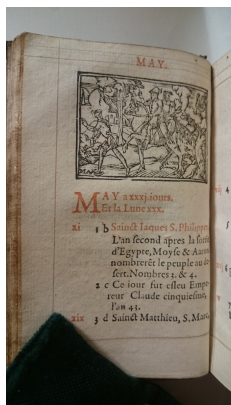 MAY.
MAY a xxxj. iours,
Et la Lune xxx.
xi 1 b Sainct Iaques S. Philippe,
L'an second apres la sortie
d'Egypte, Moyse & Aaron
nombrerēt le peuple au de-
sert. Nombres 1. & 4.
2 c Ce iour fut esleu Empe-
reur Claude cinquiesme,
l'an 43.
xix 3 d Sainct Matthieu, S. Marc,